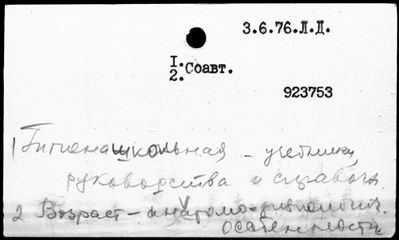 3.6.76.Л.Д.
I.
2. Соавт.
923753
1 Гигиена школьная - учебники
руководства и справочн.
2 Возраст - анатомо-физиологич.
особенности